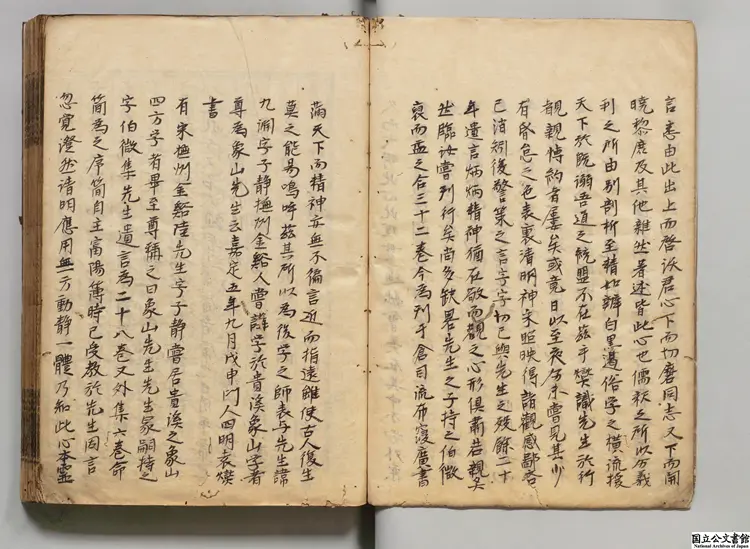 言悉由此出上而啓沃君心下而切磨同志又下而開
曉黎庶及其他雜然著述皆此心也儒釈之所以分義
利之所由别剖析至精如辨白黒遏俗学之横流援
天下於既溺吾道之統盟不在茲乎燮識先生於行
都親博約者屢矣或竟日以至夜分未嘗見其少
有昏怠之色表裏清明神采照映得諸觀感鄙吝
已消矧復警策之言字字切己與先生之歿餘二十
年遺言炳炳精神猶在敬而觀之心形俱肅若親炙
然臨汝嘗刊行矣尚多缺畧先生之子持之伯微
裒而益之合三十二卷今為刊于倉司流布寖廣書
滿天下而精神亦無不徧言近而指遠雖使古人復生
莫之能易嗚呼茲其所以為後学之師表与先生諱
九渊字子静撫州金谿人嘗講学於貴溪象山学者
尊為象山先生云嘉定五年九月戊申門人四明袁燮
書
有宋撫州金谿陸先生字子静嘗居貴溪之象山
四方学者畢至尊稱之曰象山先生先生冢嗣持之
字伯微集先生遺言為二十八卷又外集六卷命
簡為之序簡自主富陽簿時已受教於先生因言
忽覚澄然清明應用無方動静一體乃知此心本霊
国立公文書館
National Archives of Japan